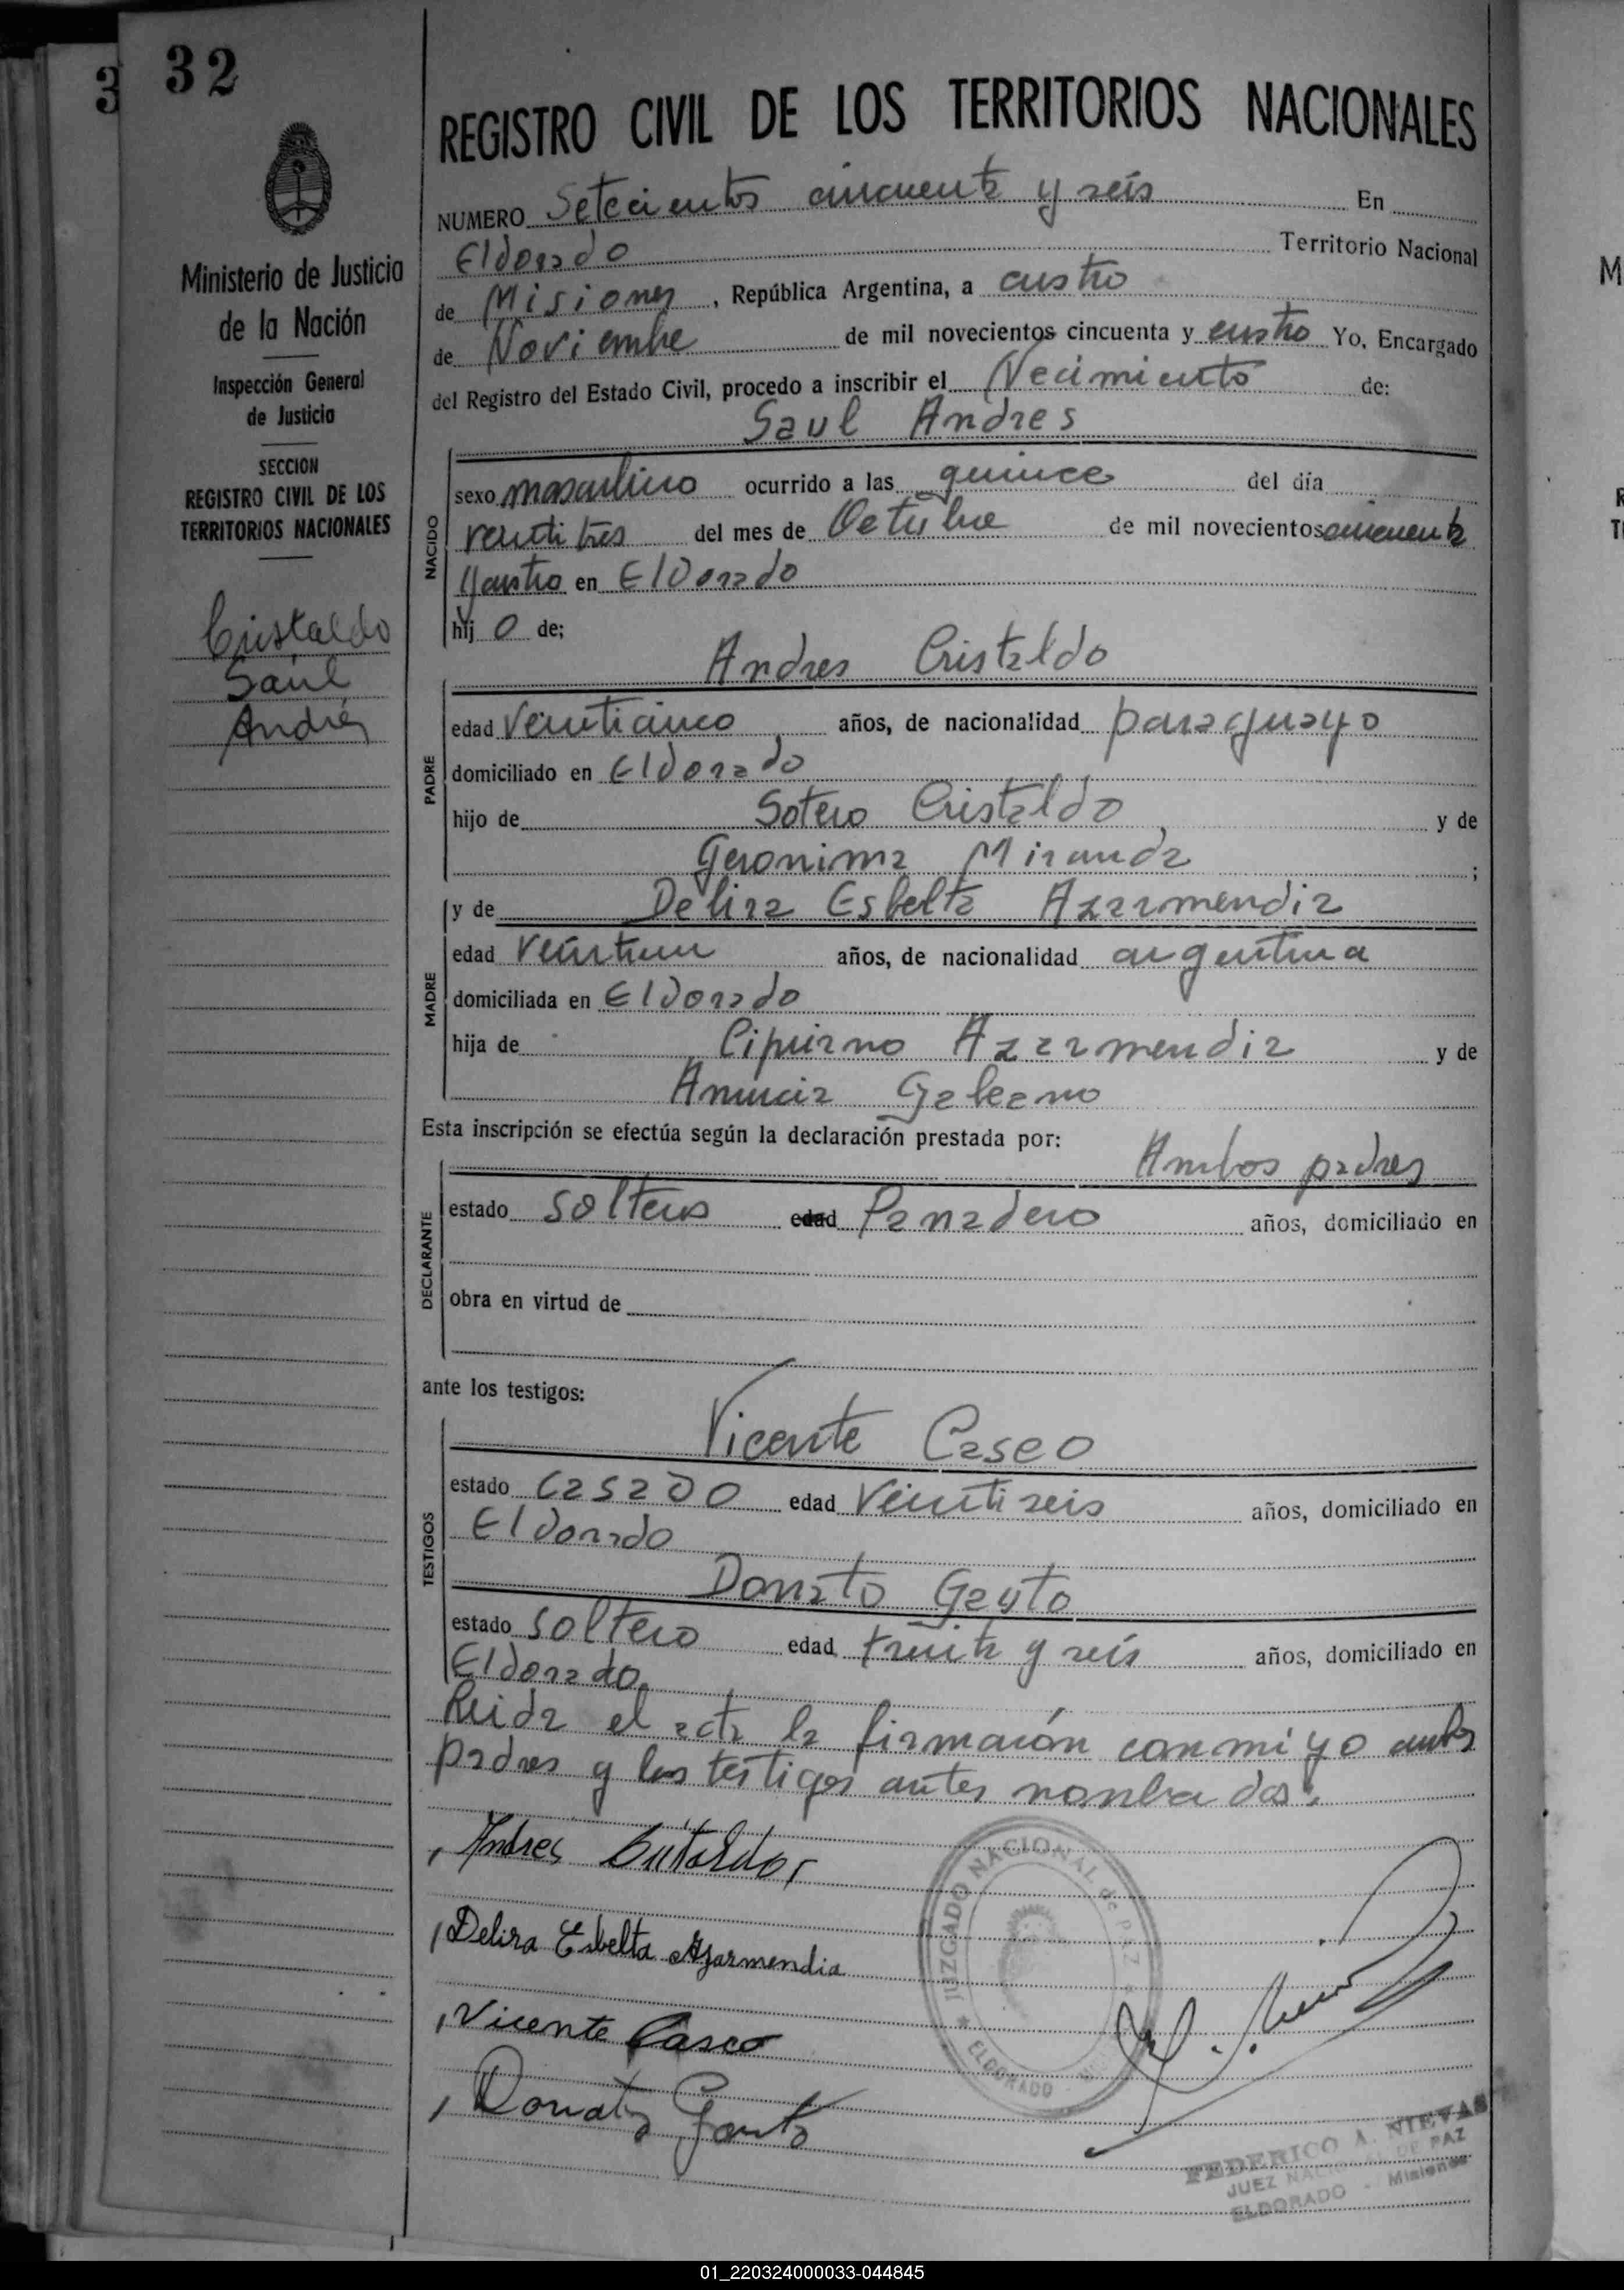 32
3
REGISTRO CIVIL DE LOS TERRITORIOS NACIONALES
Ministerio de Justicia
de la Nación
Inspección General
de Justicia
SECCION
REGISTRO CIVIL DE LOS
TERRITORIOS NACIONALES
Cristaldo
Saúl
Andrés
NUMERO Setecientos cincuenta y seis En
Eldorado Territorio Nacional
de Misiones, República Argentina, a cuatro
de Noviembre de mil novecientos cincuenta y cuatro Yo, Encargado
del Registro del Estado Civil, procedo a inscribir el Necimiento de:
Saul Andres
NACIDO
sexo masculino ocurrido a las quince del día
veintitres del mes de Octubre de mil novecientos cincuenta
y cuatro en Eldorado
hij o de;
Andres Cristaldo
PADRE
edad veinticinco años, de nacionalidad paraguayo
domiciliado en Eldorado
hijo de Sotero Cristaldo y de
Geronima Miranda ;
y de Delira Esbelta Azarmendia
MADRE
edad veintiun años, de nacionalidad argentina
domiciliada en Eldorado
hija de Cipriano Azarmendia y de
Anuncia Galeano
Esta inscripción se efectúa según la declaración prestada por:
Ambos padres
DECLARANTE
estado soltero edad Panadero años, domiciliado en
obra en virtud de
ante los testigos:
Vicente Casco
TESTIGOS
estado casado edad Veintiseis años, domiciliado en
Eldorado
Donato Gauto
estado soltero edad treinta y seis años, domiciliado en
Eldorado.
Leida el acta la firmaron conmigo ambos
padres y los testigos antes nombrados.
Andres Cristaldo
Delira Esbelta Azarmendia
Vicente Casco
Donato Gauto
JUZGADO NACIONAL de PAZ
ELDORADO
FEDERICO A. NIEVAS
JUEZ NACIONAL DE PAZ
ELDORADO - Misiones
01_220324000033-044845